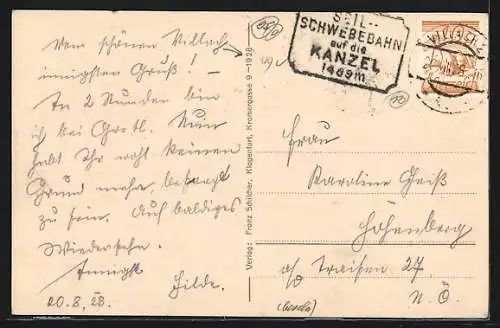 Vom schönen Villach
innigsten Gruß! –
In 2 Stunden bin
ich bei Gretl. Nun
habt Ihr wohl keinen
Grund mehr, besorgt
zu sein. Auf baldiges
Wiedersehn.
Innigst
Hilde.
20.8.28.
Verlag: Franz Schilcher, Klagenfurt, Kramergasse 9 –1928
SEIL-
SCHWEBEBAHN
auf die
KANZEL
1469m
VILLACH 2
Frau
Karoline Geiß
Hohenberg
a/d Traisen 27
N. Ö.